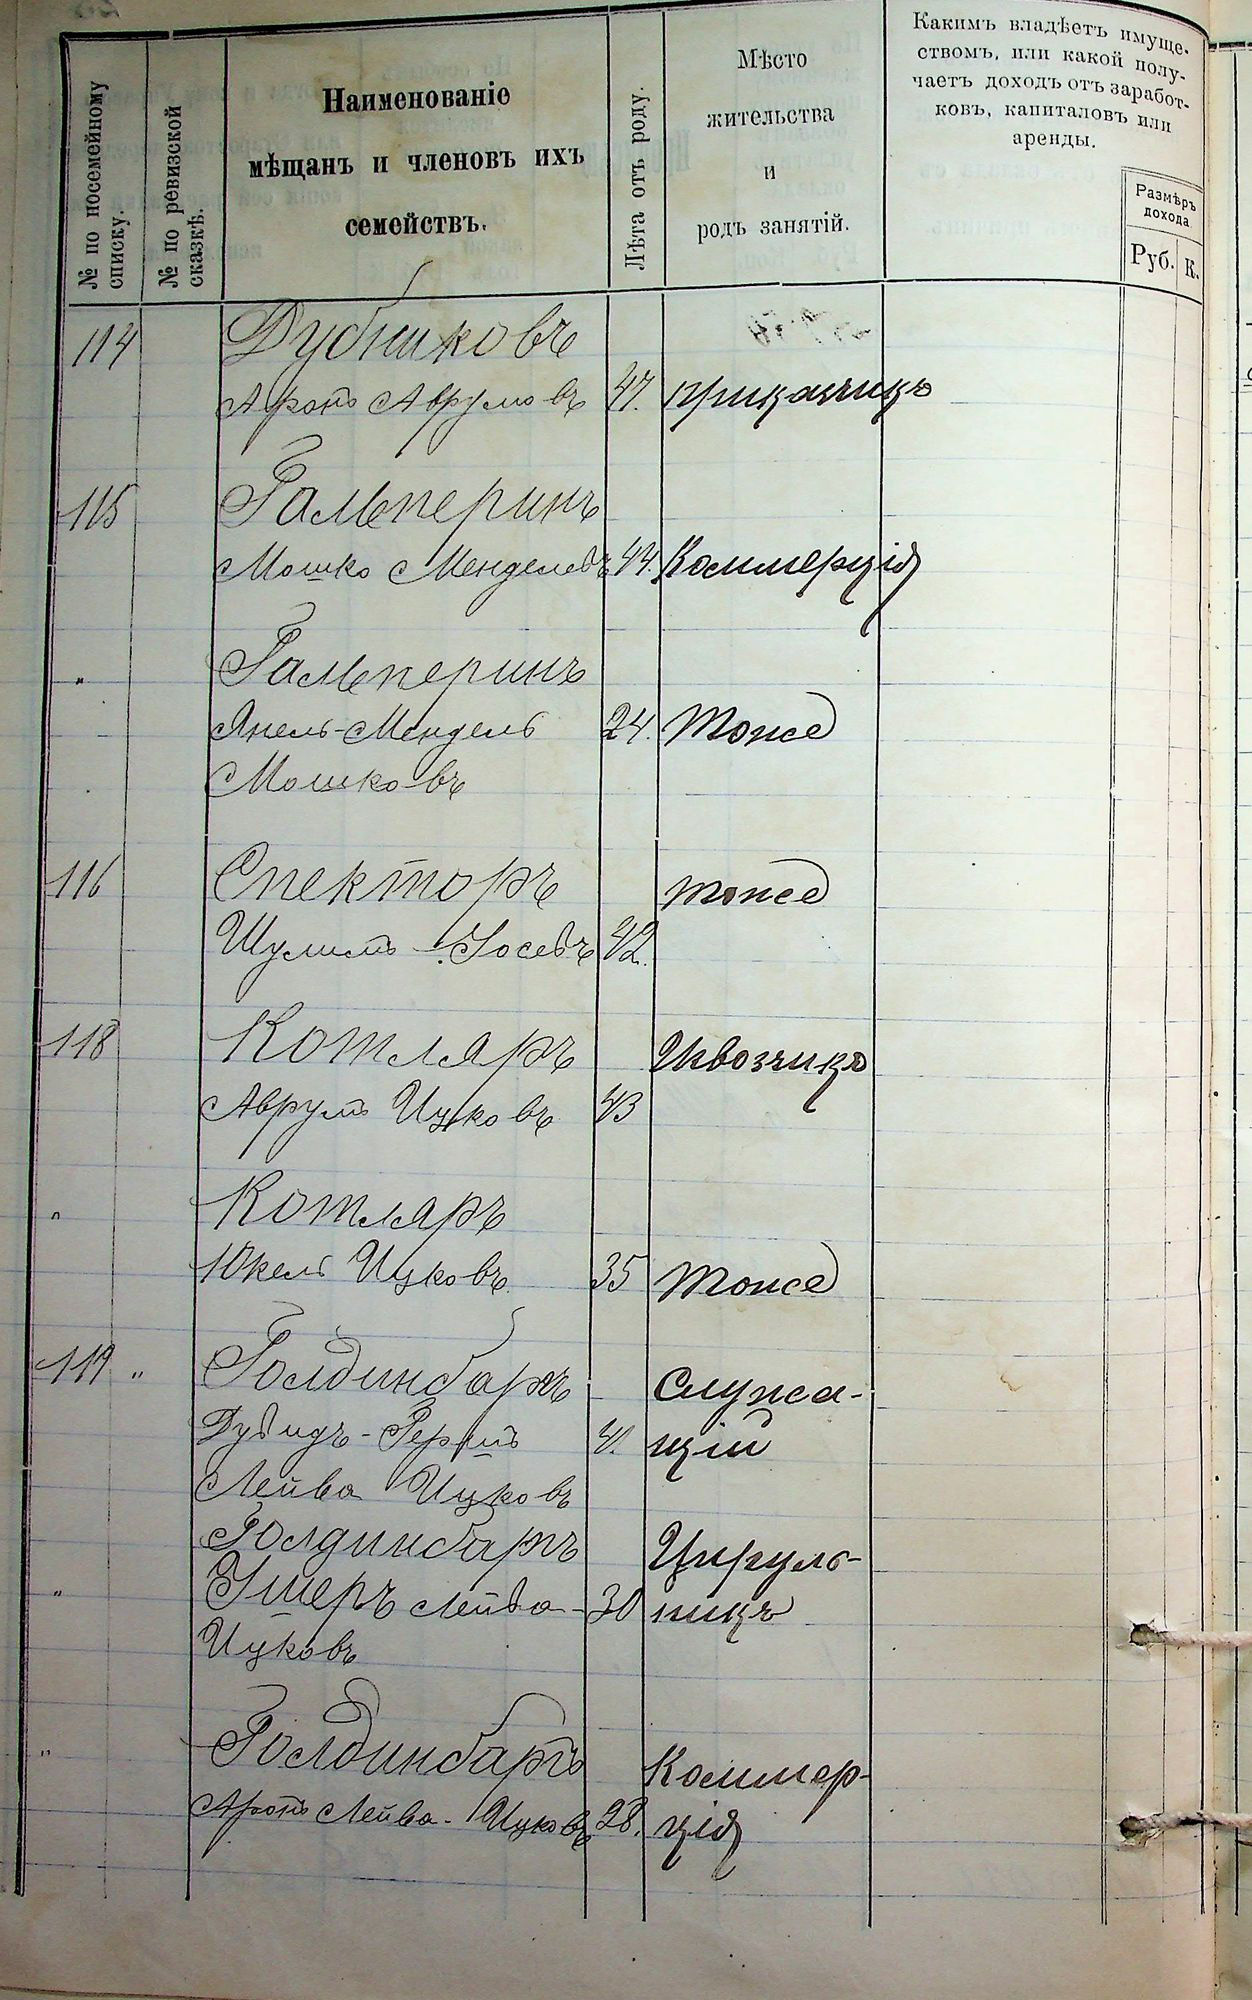 № по посемейному списку.
№ по ревизской сказкѣ.
Наименованіе
мѣщанъ и членовъ ихъ
семействъ.
Лѣта отъ роду.
Мѣсто
жительства
и
родъ занятій.
Какимъ владѣетъ имуще-
ствомъ, или какой полу-
чаетъ доходъ отъ заработ-
ковъ, капиталовъ или
аренды.
Размѣръ
дохода
Руб. К.
114 Дубниковъ
Аронъ Аврумовъ 47. приказчикъ
115 Гальперинъ
Мошко Менделевъ 44. Коммерція
" Гальперинъ
Янель-Мендель 24. Тоже
Мошковъ
116 Спекторъ тоже
Шулимъ Іосевъ 42.
118 Котляръ Извозчикъ
Аврумъ Ицковъ 43
" Котляръ
Юкель Ицковъ 35 Тоже
119 " Голдинбаръ Служа-
Дувидъ-Гершъ 41. щій
Лейва Ицковъ
Голдинбаргъ Цируль-
" Ушеръ Лейва- 30 никъ
Ицковъ
" Голдинбаргъ Коммер-
Аронъ Лейва-Ицковъ 28. ція